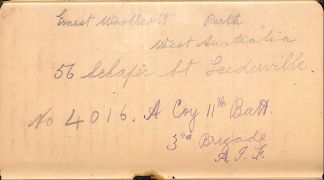 Ernest Woollcott Perth
West Australia
56 Schafer St Leederville.
No 4016. A Coy 11th Batt.
3rd Brigade
A. I. F.